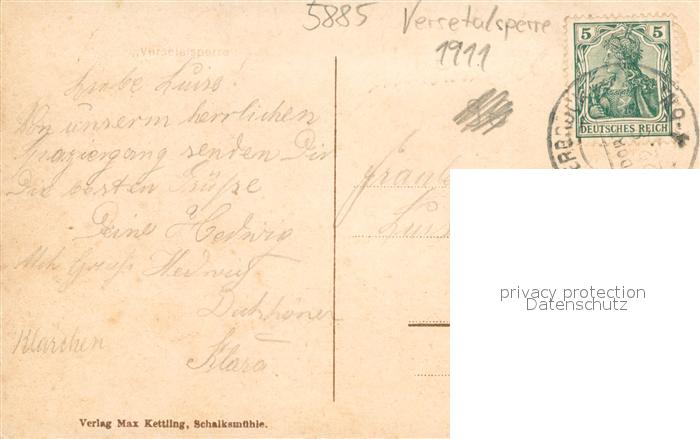 5885 Versetalsperre
1911
„Versetalsperre“
Liebe Luise!
Von unserm herrlichen
Spaziergang senden Dir
Die besten Grüße
Deine Hedwig
Gruß Hedwig
Klärchen
Klara
Fräulein
5 5
DEUTSCHES REICH
privacy protection
Datenschutz
Verlag Max Kettling, Schalksmühle.